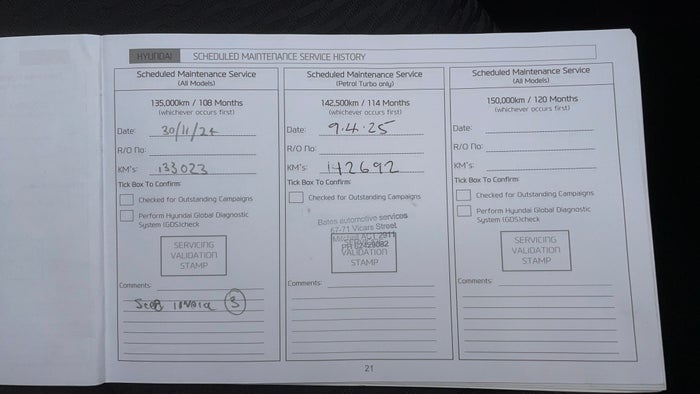 HYUNDAI SCHEDULED MAINTENANCE SERVICE HISTORY
Scheduled Maintenance Service
(All Models)
135,000km / 108 Months
(whichever occurs first)
Date: 30/11/24
R/O No:
KM's: 133023
Tick Box To Confirm:
Checked for Outstanding Campaigns
Perform Hyundai Global Diagnostic
System (GDS)check
SERVICING
VALIDATION
STAMP
Comments:
3
Scheduled Maintenance Service
(Petrol Turbo only)
142,500km / 114 Months
(whichever occurs first)
Date: 9.4.25
R/O No:
KM's: 142692
Tick Box To Confirm:
Checked for Outstanding Campaigns
Bates automotive services
67-71 Vicars Street
Mitchell ACT 2911
VALIDATION
STAMP
Comments:
Scheduled Maintenance Service
(All Models)
150,000km / 120 Months
(whichever occurs first)
Date:
R/O No:
KM's:
Tick Box To Confirm:
Checked for Outstanding Campaigns
Perform Hyundai Global Diagnostic
System (GDS)check
SERVICING
VALIDATION
STAMP
Comments:
21